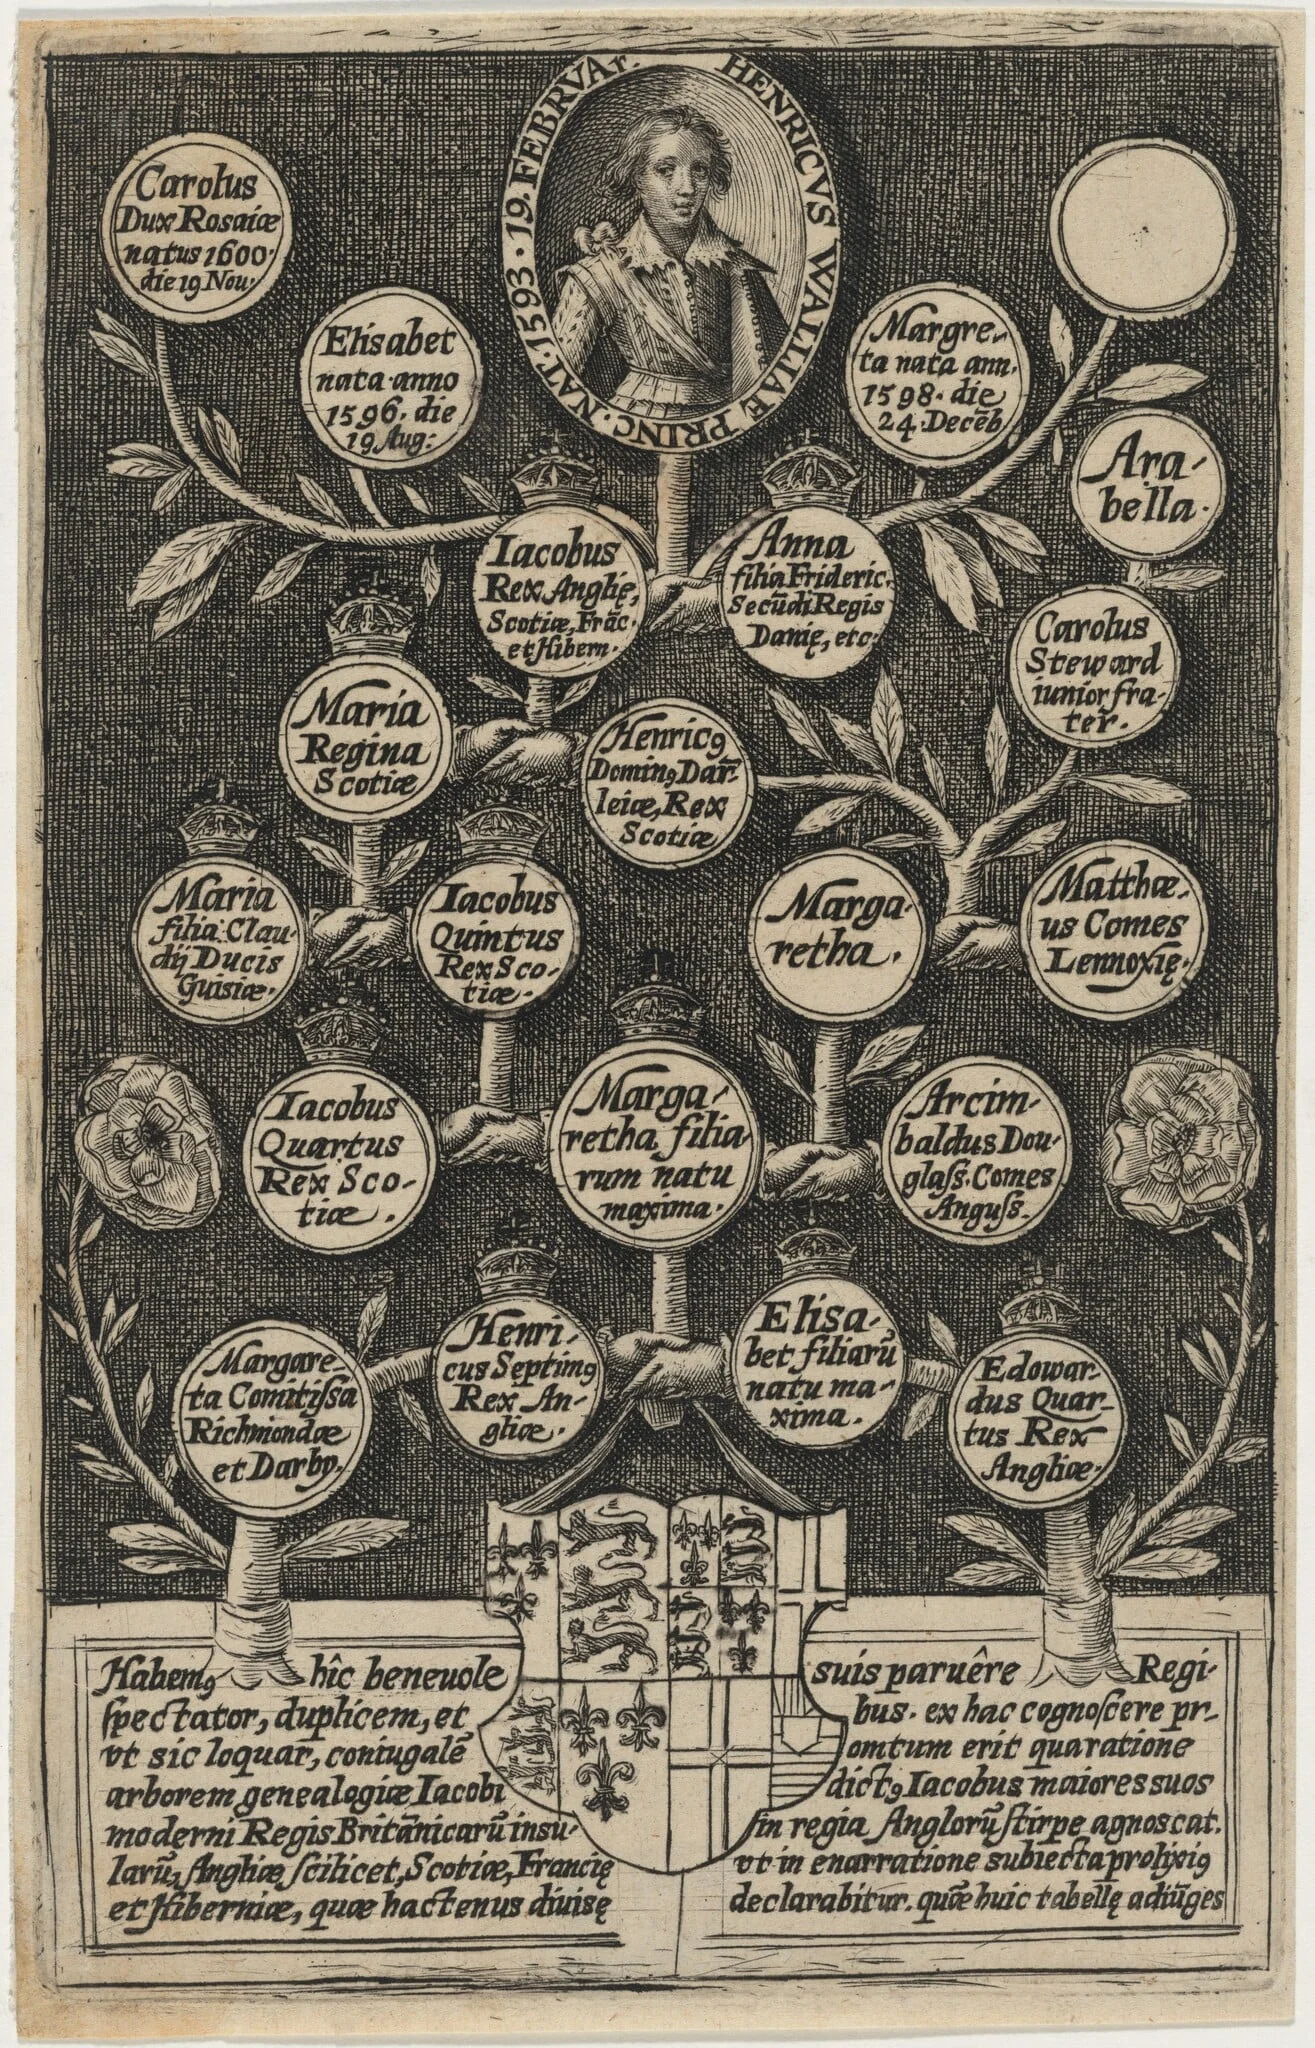 HENRICVS WALLIAE PRINC. NAT. 1593. 19. FEBRVAr.
Carolus
Dux Rosaiæ
natus 1600.
die 19 Nou:
Elisabet
nata anno
1596. die
19 Aug:
Margre-
ta nata ann.
1598. die
24. Decēb
Ara-
bella.
Iacobus
Rex Anglię,
Scotiæ, Frāc.
et Hibern.
Anna
filia Frideric.
Secūdi Regis
Danię, etc.
Carolus
Steward
iunior fra-
ter.
Maria
Regina
Scotiæ
Henricꝯ
Dominꝯ Dar-
leiæ, Rex
Scotiæ
Maria
filia Clau-
dij Ducis
Guisiæ.
Iacobus
Quintus
Rex Sco-
tiæ.
Marga-
retha.
Matthæ-
us Comes
Lennoxię.
Iacobus
Quartus
Rex Sco-
tiæ.
Marga-
retha filia-
rum natu
maxima.
Arcim-
baldus Dou-
glaſs. Comes
Anguſs.
Margare-
ta Comitiſsa
Richmondæ
et Darby.
Henri-
cus Septimꝯ
Rex An-
gliæ.
Elisa-
bet filiarū
natu ma-
xima.
Edowar-
dus Quar-
tus Rex
Angliæ.
Habemꝯ hîc beneuole
ſpectator, duplicem, et
vt sic loquar, coniugalē
arborem genealogiæ Iacobi
moderni Regis Britānicarū insu-
larū, Angliæ ſcilicet, Scotiæ, Francię
et Hiberniæ, quæ hactenus diuisę
suis paruêre Regi-
bus. ex hac cognoſcere pr-
omtum erit qua ratione
dictꝯ Iacobus maiores suos
in regia Anglorū ſtirpe agnoscat.
vt in enarratione subiecta prolixiꝯ
declarabitur. quæ huic tabellę adiūges